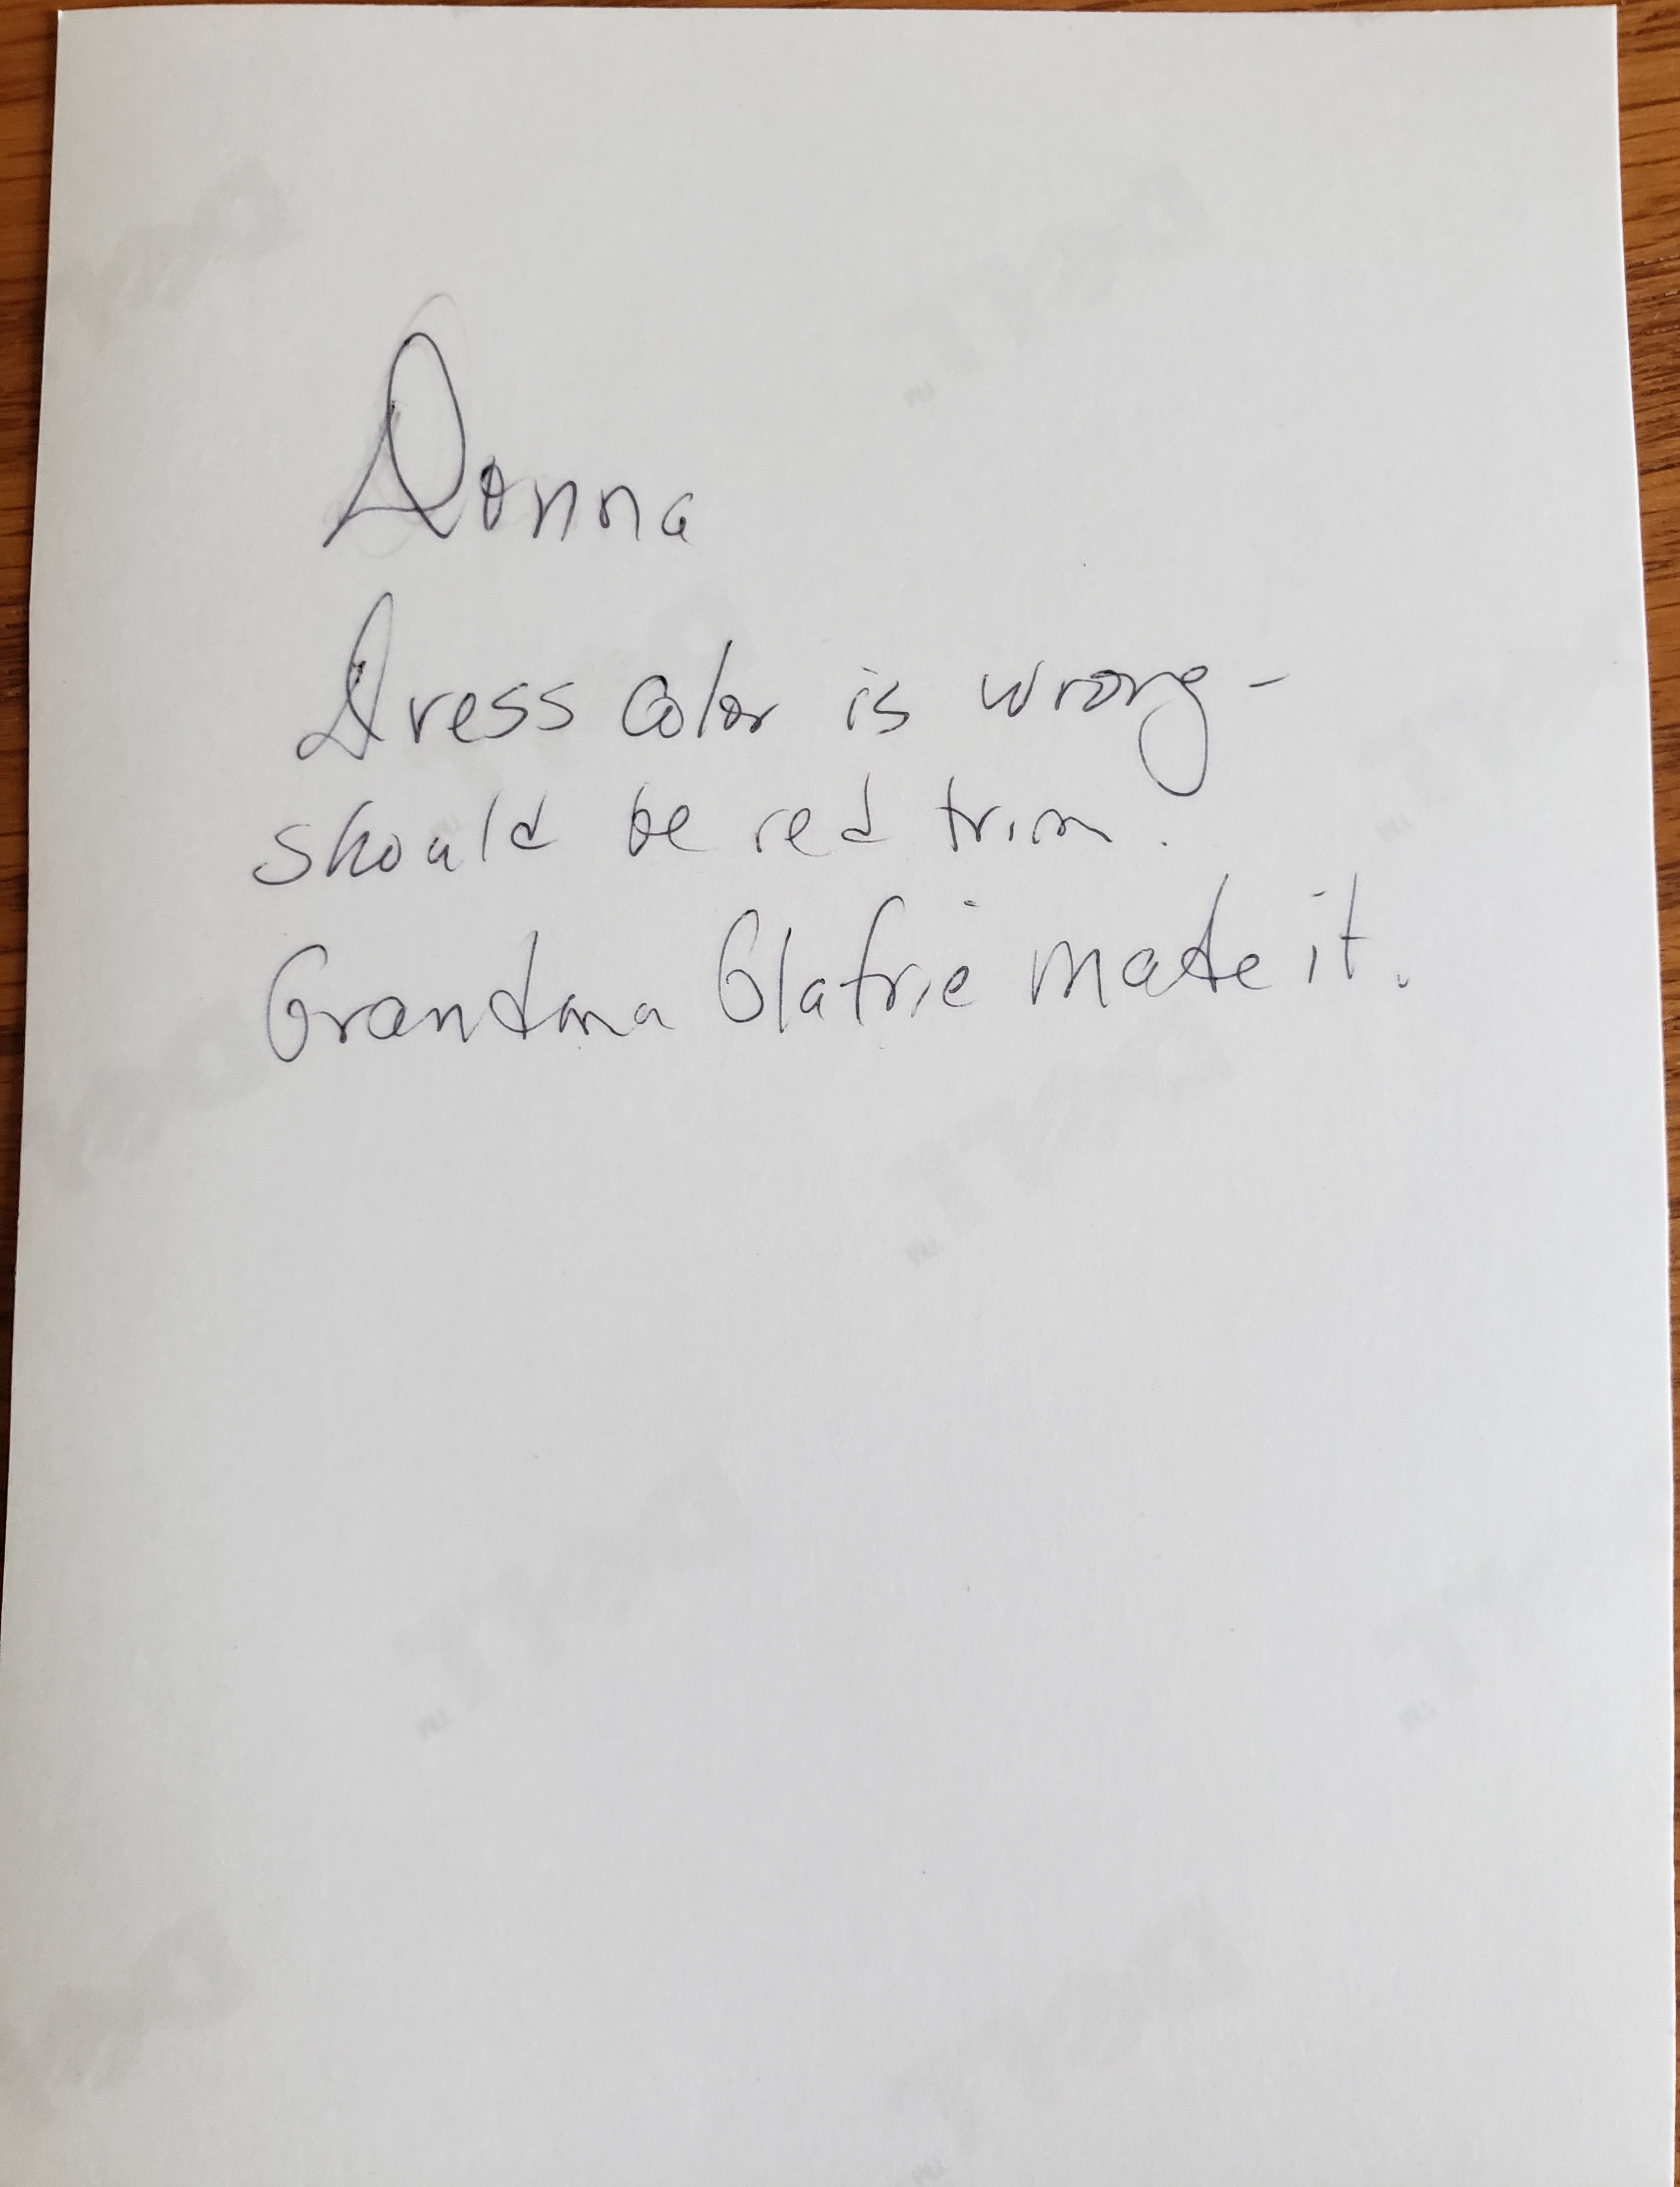 Donna
Dress Color is wrong-
should be red trim.
Grandma Glafrie made it.